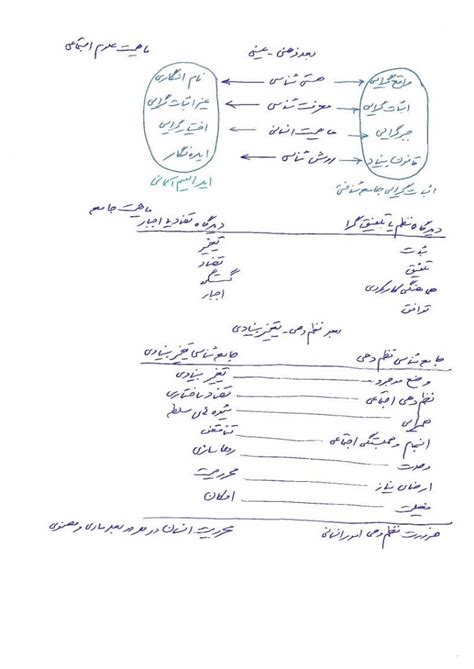 بعد ذهنی - عینی ماهیت علوم اجتماعی
واقع گرایی هستی شناسی نام انگاری
اثبات گرایی معرفت شناسی غیر اثبات گرایی
جبرگرایی ماهیت انسانی اختیارگرایی
قانون بنیاد روش شناسی ایده نگار
اثبات گرایی جامعه شناختی ایدآلیسم آلمانی
ماهیت جامعه
دیدگاه نظم یا تلفیق گرا دیدگاه تضاد یا اجبار
ثبات تغییر
تلفیق تضاد
هماهنگی کارکردی گسستگی
توافق اجبار
بعد نظم دهی - تغییر بنیادی
جامعه شناسی نظم دهی جامعه شناسی تغییر بنیادی
وضع موجود تغییر بنیادی
نظم دهی اجتماعی تضاد ساختاری
همرایی شیوه های سلطه
انسجام و همبستگی اجتماعی تناقض
وحدت رهاسازی
ارضای نیاز محرومیت
فعلیت امکان
ضرورت نظم دهی امور انسانی محرومیت انسان در هر دو بعد مادی و معنوی